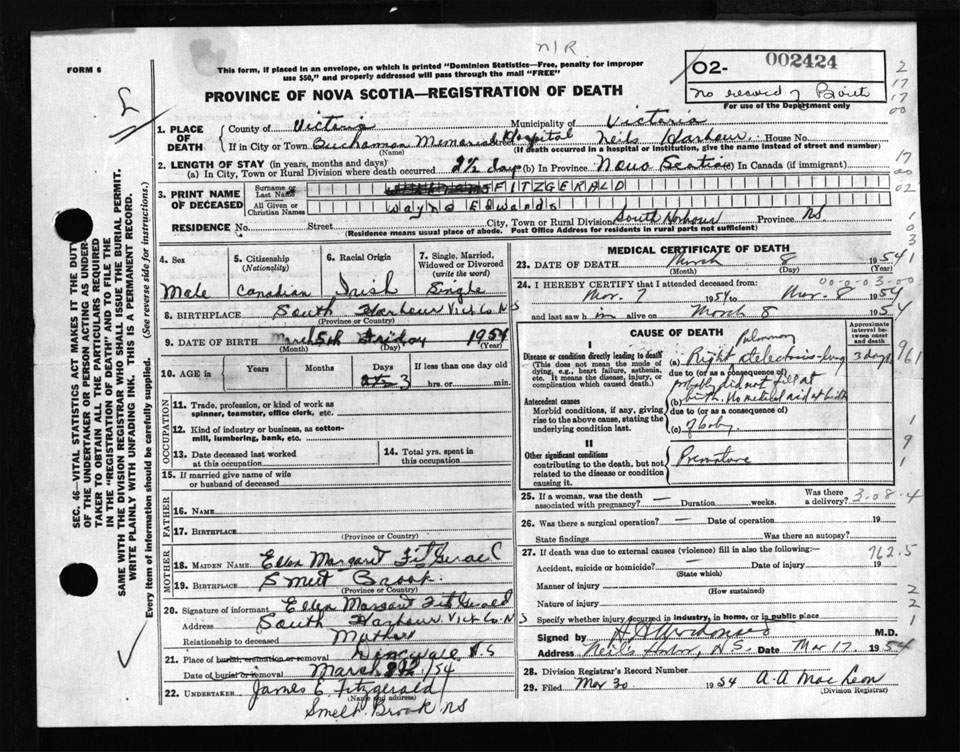 N/R
FORM 6
This form, if placed in an envelope, on which is printed "Dominion Statistics—Free, penalty for improper
use $50," and properly addressed will pass through the mail "FREE"
PROVINCE OF NOVA SCOTIA—REGISTRATION OF DEATH
02- 002424
no record of Birth
For use of the Department only
1. PLACE OF DEATH
County of Victoria Municipality of Victoria
If in City or Town Buchanan Memorial Hospital Neils Harbour. House No.
(Name) (If death occurred in a hospital or institution, give the name instead of street and number)
2. LENGTH OF STAY (in years, months and days)
(a) In City, Town or Rural Division where death occurred 2½ day (b) In Province Nova Scotia (c) In Canada (if immigrant)
3. PRINT NAME OF DECEASED
Surname or Last Name FITZGERALD
All Given or Christian Names Wayne Edwards
RESIDENCE No. Street City, Town or Rural Division South Harbour Province NS
(Residence means usual place of abode. Post Office Address for residents in rural parts not sufficient)
4. Sex Male
5. Citizenship (Nationality) Canadian
6. Racial Origin Irish
7. Single, Married, Widowed or Divorced (write the word) Single
8. BIRTHPLACE South Harbour Vict Co. N S
(Province or Country)
9. DATE OF BIRTH March 5th Friday 1954
(Month) (Day) (Year)
10. AGE is Years Months Days 3 If less than one day old hrs. or min.
OCCUPATION
11. Trade, profession, or kind of work as
spinner, teamster, office clerk, etc.
12. Kind of industry or business, as cotton-
mill, lumbering, bank, etc.
13. Date deceased last worked
at this occupation
14. Total yrs. spent in
this occupation
15. If married give name of wife
or husband of deceased
FATHER
16. Name
17. Birthplace
(Province or Country)
MOTHER
18. MAIDEN NAME Ellen Margaret FitzGerald
19. BIRTHPLACE Smelt Brook
(Province or Country)
20. Signature of informant Ellen Margaret FitzGerald
Address South Harbour Vict Co. N S
Relationship to deceased Mother
21. Place of burial, cremation or removal Dingwall N.S
Date of burial or removal March /54
22. UNDERTAKER James C Fitzgerald
(Name and address)
Smelt Brook NS
MEDICAL CERTIFICATE OF DEATH
23. DATE OF DEATH March 8 1954
(Month) (Day) (Year)
24. I HEREBY CERTIFY that I attended deceased from:
Mar. 7 1954 to Mar. 8 1954
and last saw h im alive on March 8 1954
CAUSE OF DEATH
Approximate interval between onset and death
I
Disease or condition directly leading to death
(This does not mean the mode of
dying, e.g., heart failure, asthenia,
etc. It means the disease, injury, or
complication which caused death.)
Pulmonary
(a) Right atelectasis - lung 3 days
due to (or as a consequence of)
probably did not fill at
Antecedent causes
Morbid conditions, if any, giving
rise to the above cause, stating the
underlying condition last.
(b) birth. No medical aid at birth
due to (or as a consequence of)
(c) of baby.
II
Other significant conditions
contributing to the death, but not
related to the disease or condition
causing it.
Premature
25. If a woman, was the death
associated with pregnancy? — Duration weeks. Was there a delivery? 3.08.4
26. Was there a surgical operation? — Date of operation 19
State findings Was there an autopsy?
27. If death was due to external causes (violence) fill in also the following:— 762.5
Accident, suicide or homicide? — Date of injury 19
(State which)
Manner of injury
(How sustained)
Nature of injury
Specify whether injury occurred in industry, in home, or in public place
Signed by M.D.
Address Neil's Harbor, N.S. Date Mar 17. 1954
28. Division Registrar's Record Number
29. Filed Mar 30 1954 A.A. MacLeon
(Division Registrar)
SEC. 46—VITAL STATISTICS ACT MAKES IT THE DUTY
OF THE UNDERTAKER OR PERSON ACTING AS UNDER-
TAKER TO OBTAIN ALL THE PARTICULARS REQUIRED
IN THE "REGISTRATION OF DEATH" AND TO FILE THE
SAME WITH THE DIVISION REGISTRAR WHO SHALL ISSUE THE BURIAL PERMIT.
WRITE PLAINLY WITH UNFADING INK. THIS IS A PERMANENT RECORD.
Every item of information should be carefully supplied. (See reverse side for instructions.)
2
17
17
00
17
00
02
1
0
3
1
00-0-03-00
961
1
9
1
2
2
1